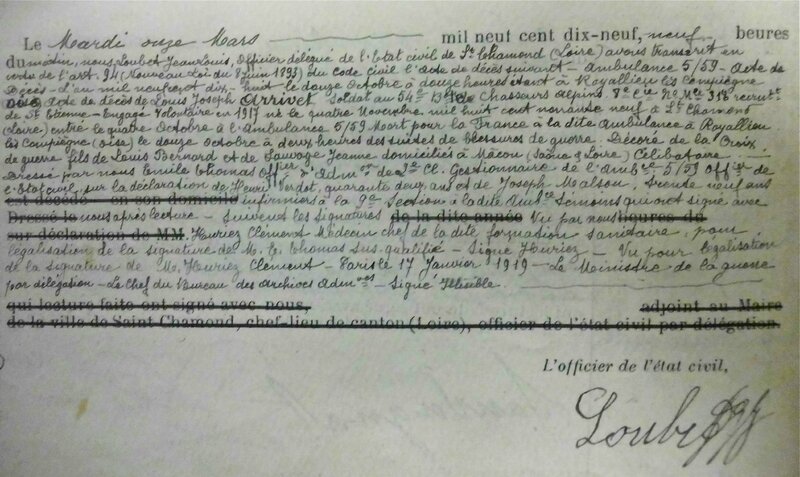 Le Mardi onze Mars mil neuf cent dix-neuf, neuf heures
du matin, nous, Loubet Jean Louis, Officier délégué de l'Etat civil de St Chamond (Loire) avons transcrit en
vertu de l'art. 94 (Nouveau Loi du 8 Juin 1893) du Code civil l'acte de décès suivant - Ambulance 5/59 - Acte de
Décès - L'an mil neuf cent dix-huit le douze Octobre à douze heures étant à Royallieu les Compiègne
Acte de décès de Louis Joseph Arrivet Soldat au 54e Chasseurs Alpins 8e Cie No Mle 318 recrutt
de St Etienne - Engagé Volontaire en 1917 né le quatre Novembre mil huit cent nonante neuf à St Chamond
(Loire) entré le quatre Octobre à l'Ambulance 5/59 Mort pour la France à la dite Ambulance à Royallieu
les Compiègne (Oise) le douze Octobre à deux heures des suites de blessures de guerre. Décoré de la Croix
de guerre fils de Louis Bernard et de Sauvage Jeanne domiciliés à Mâcon (Saône & Loire) Célibataire
Dressé par nous Emile Thomas Offier d'Admon de 2e Cl. Gestionnaire de l'Ambce 5/59 Offer de
l'Etat civil, sur la déclaration de Henri Verdot, quarante deux ans et de Joseph Malson, trente neuf ans
est décédé en son domicile infirmiers à la 9e Section à la dite Ambce témoins qui ont signé avec
Dressé le nous après lecture - Suivent les signatures de la dite année Vu par nous heures du
sur déclaration de MM. Heuriez Clément Médecin chef de la dite formation sanitaire, pour
légalisation de la signature de M. E. Thomas sus-qualifié - Signé Heuriez - Vu pour légalisation
de la signature de M. Heuriez Clément - Paris le 17 Janvier 1919 - Le Ministre de la guerre
par délégation - Le Chef du Bureau des Archives Admves - Signé Illisible.
qui lecture faite ont signé avec nous, adjoint au Maire
de la ville de Saint Chamond, chef-lieu de canton (Loire), officier de l'état civil par délégation
L'officier de l'état civil,
Loubet